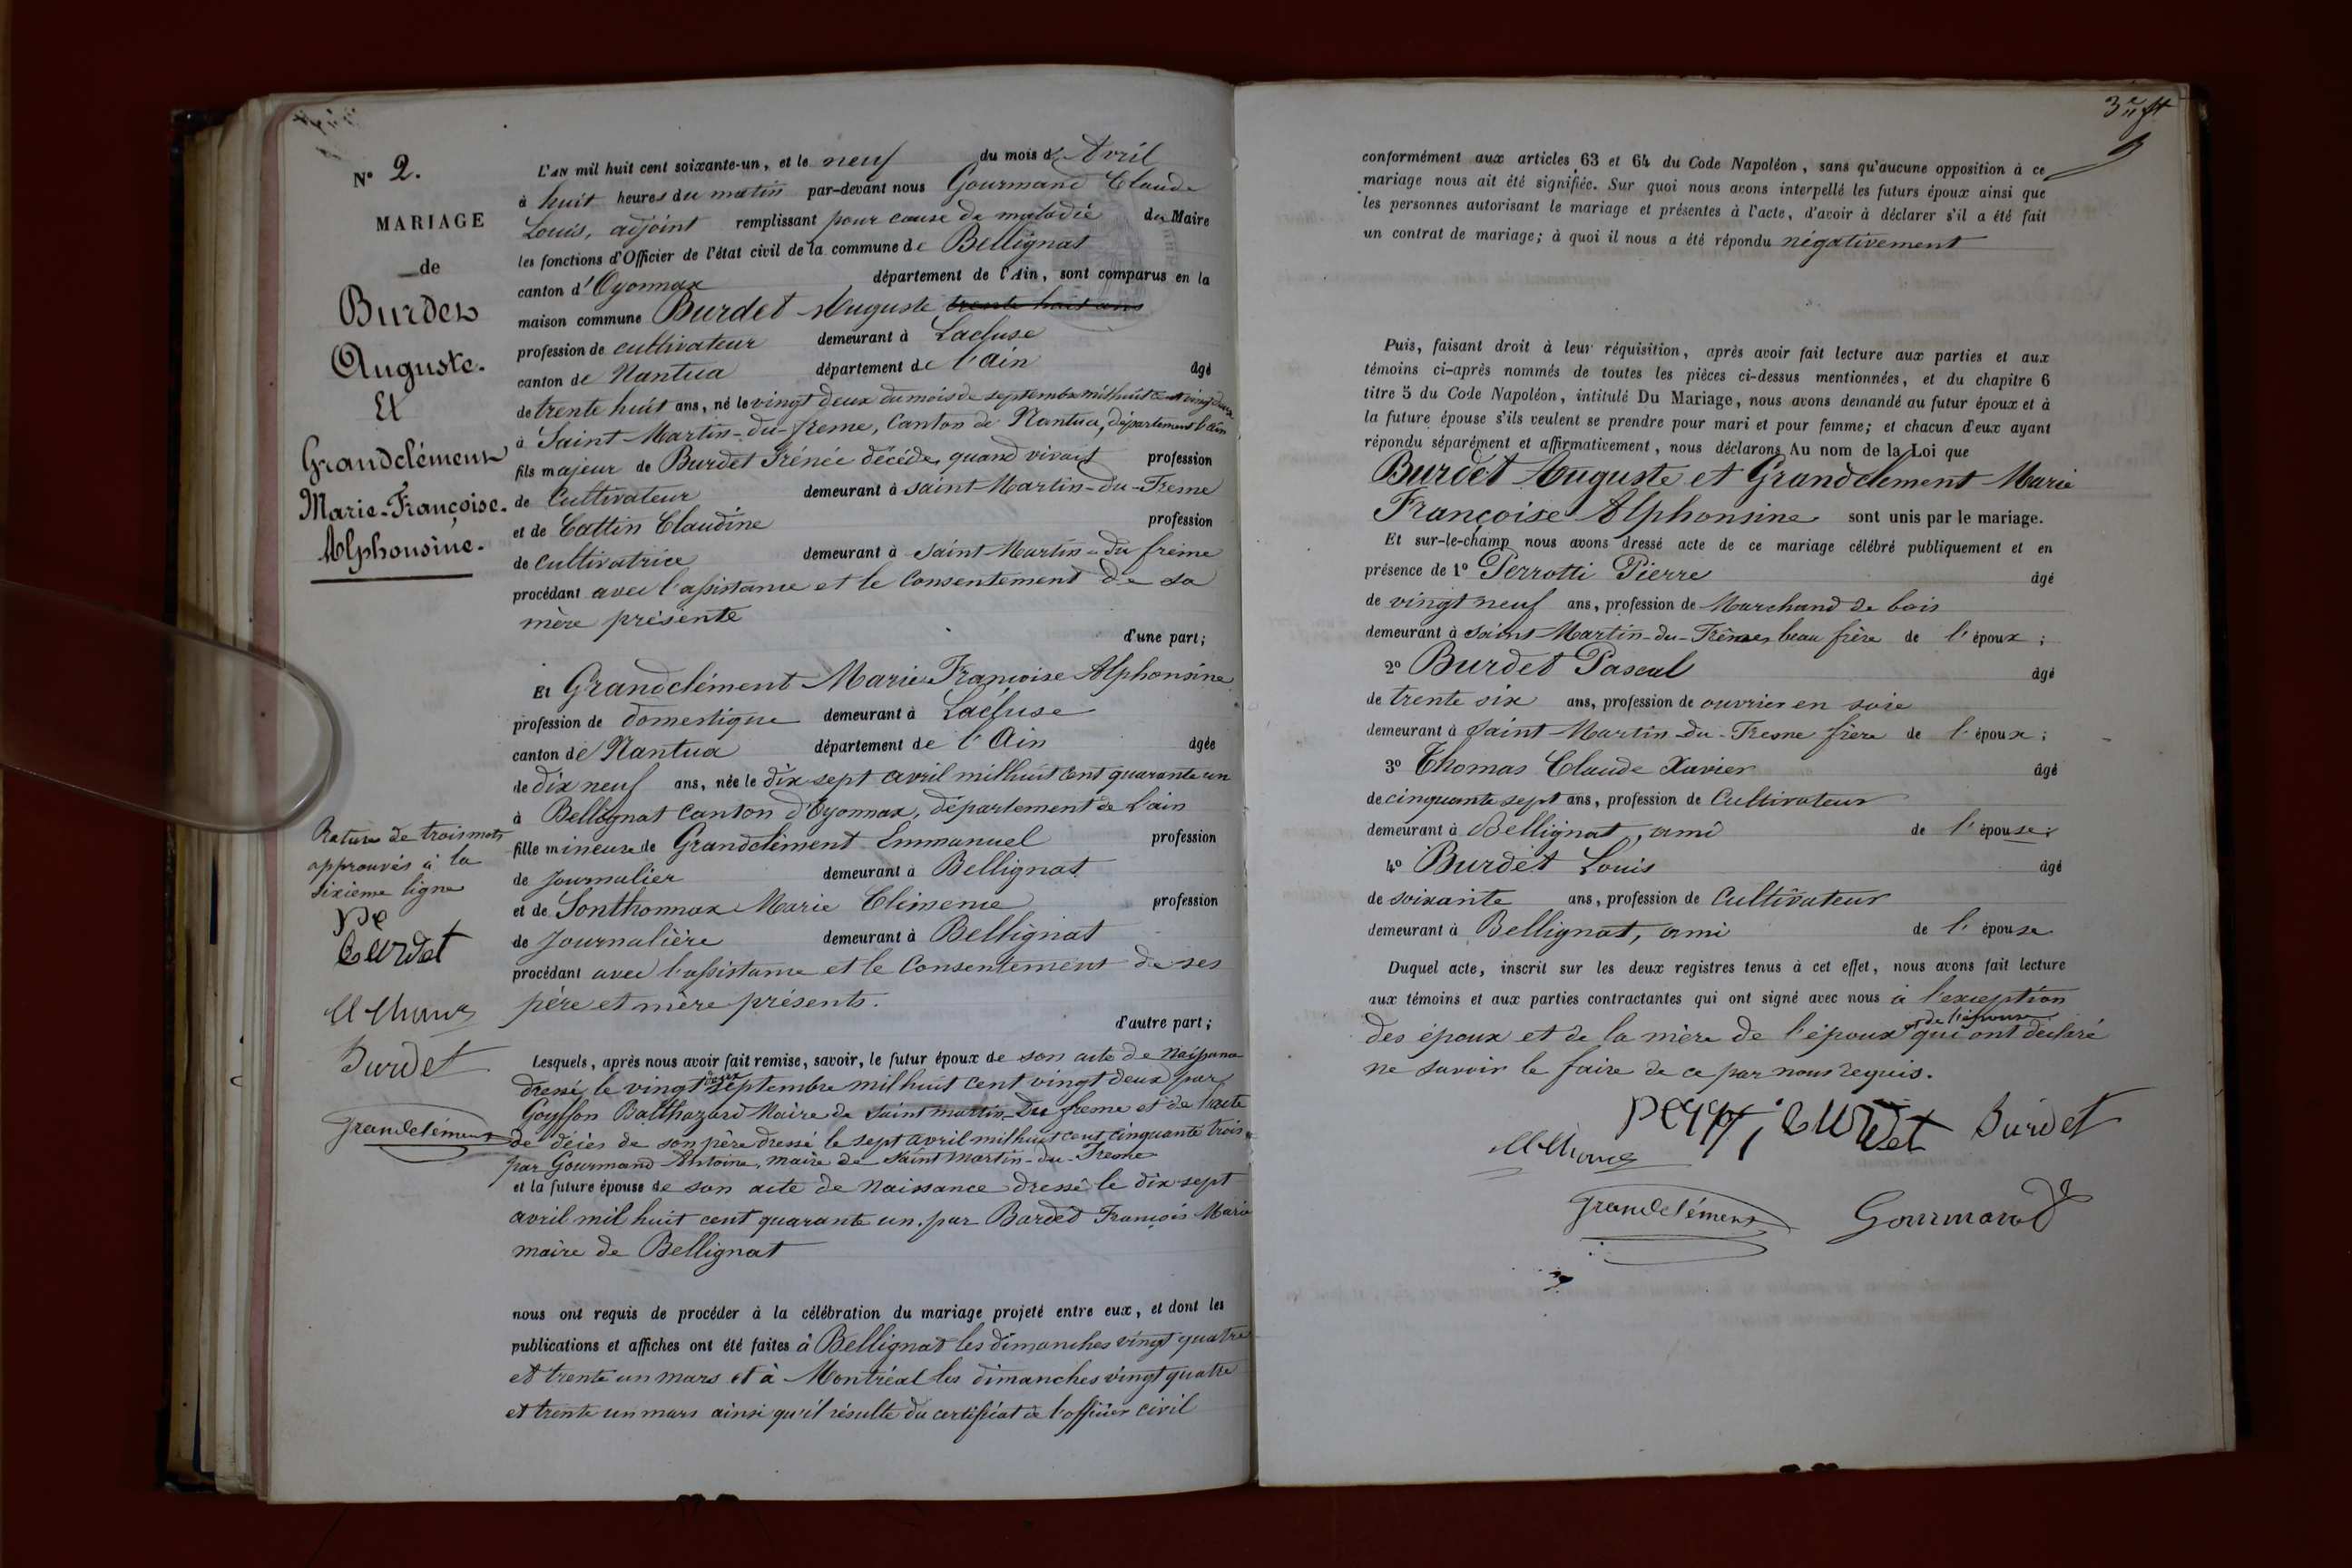 N° 2.
MARIAGE
de
Burdet
Auguste.
Et
Grandclément
Marie-Françoise-
Alphonsine.
Rature de trois mots
approuvés à la
sixième ligne
pe
burdet
Burdet
Grandclément
L'AN mil huit cent soixante-un, et le neuf du mois d'Avril
à huit heures du matin par-devant nous Gourmand Claude
Louis, adjoint remplissant pour cause de maladie du Maire
les fonctions d'Officier de l'état civil de la commune de Bellignat
canton d'Oyonnax département de l'Ain, sont comparus en la
maison commune Burdet Auguste trente huit ans
profession de cultivateur demeurant à Lacluse
canton de Nantua département de l'Ain âgé
de trente huit ans, né le vingt deux du mois de septembre mil huit cent vingt deux
à Saint-Martin-du-freme, Canton de Nantua, département l'ain
fils majeur de Burdet Irénée décédé, quand vivait profession
de Cultivateur demeurant à saint-Martin-du-Freme
et de Cattin Claudine profession
de cultivatrice demeurant à saint-Martin-du freme
procédant avec l'assistance et le Consentement de sa
mère présente
d'une part;
Et Grandclément Marie Françoise Alphonsine
profession de domestique demeurant à Lacluse
canton de Nantua département de l'Ain âgée
de dix neuf ans, née le dix sept avril mil huit cent quarante un
à Bellignat canton d'Oyonnax, département de l'ain
fille mineure de Grandclément Emmanuel profession
de Journalier demeurant à Bellignat
et de Sonthonnax Marie Clémence profession
de Journalière demeurant à Bellignat
procédant avec l'assistance et le Consentement de ses
père et mère présents.
d'autre part;
Lesquels, après nous avoir fait remise, savoir, le futur époux de son acte de Naissance
dressé le vingt deux septembre mil huit cent vingt deux par
Goyffon Balthazard Maire de saint martin-Du freme et de l'acte
de décès de son père dressé le sept avril mil huit cent cinquante trois
par Gourmand Antoine, maire de saint Martin-du-Fresne
et la future épouse de son acte de Naissance dressé le dix sept
avril mil huit cent quarante un par Bardet François Marie
maire de Bellignat
nous ont requis de procéder à la célébration du mariage projeté entre eux, et dont les
publications et affiches ont été faites à Bellignat les dimanches vingt quatre
et trente un mars et à Montréal les dimanches vingt quatre
et trente un mars ainsi qu'il résulte du certificat de l'officier civil
conformément aux articles 63 et 64 du Code Napoléon, sans qu'aucune opposition à ce
mariage nous ait été signifiée. Sur quoi nous avons interpellé les futurs époux ainsi que
les personnes autorisant le mariage et présentes à l'acte, d'avoir à déclarer s'il a été fait
un contrat de mariage; à quoi il nous a été répondu négativement
Puis, faisant droit à leur réquisition, après avoir fait lecture aux parties et aux
témoins ci-après nommés de toutes les pièces ci-dessus mentionnées, et du chapitre 6
titre 5 du Code Napoléon, intitulé Du Mariage, nous avons demandé au futur époux et à
la future épouse s'ils veulent se prendre pour mari et pour femme; et chacun d'eux ayant
répondu séparément et affirmativement, nous déclarons Au nom de la Loi que
Burdet Auguste et Grandclement Marie
Françoise Alphonsine sont unis par le mariage.
Et sur-le-champ nous avons dressé acte de ce mariage célébré publiquement et en
présence de 1° Perrotti Pierre âgé
de vingt neuf ans, profession de Marchand de bois
demeurant à saint-Martin-du-Frême, beau frère de l'époux;
2° Burdet Pascal âgé
de trente six ans, profession de ouvrier en soie
demeurant à saint-Martin-du-Fresne frère de l'époux;
3° Thomas Claude Xavier âgé
de cinquante sept ans, profession de Cultivateur
demeurant à Bellignat, ami de l'épouse;
4° Burdet Louis âgé
de soixante ans, profession de Cultivateur
demeurant à Bellignat, ami de l'épouse
Duquel acte, inscrit sur les deux registres tenus à cet effet, nous avons fait lecture
aux témoins et aux parties contractantes qui ont signé avec nous à l'exception
des époux et de la mère de l'époux et de l'épouse qui ont declaré
ne savoir le faire de ce par nous requis.
burdet Burdet
Grandclément Gourmand